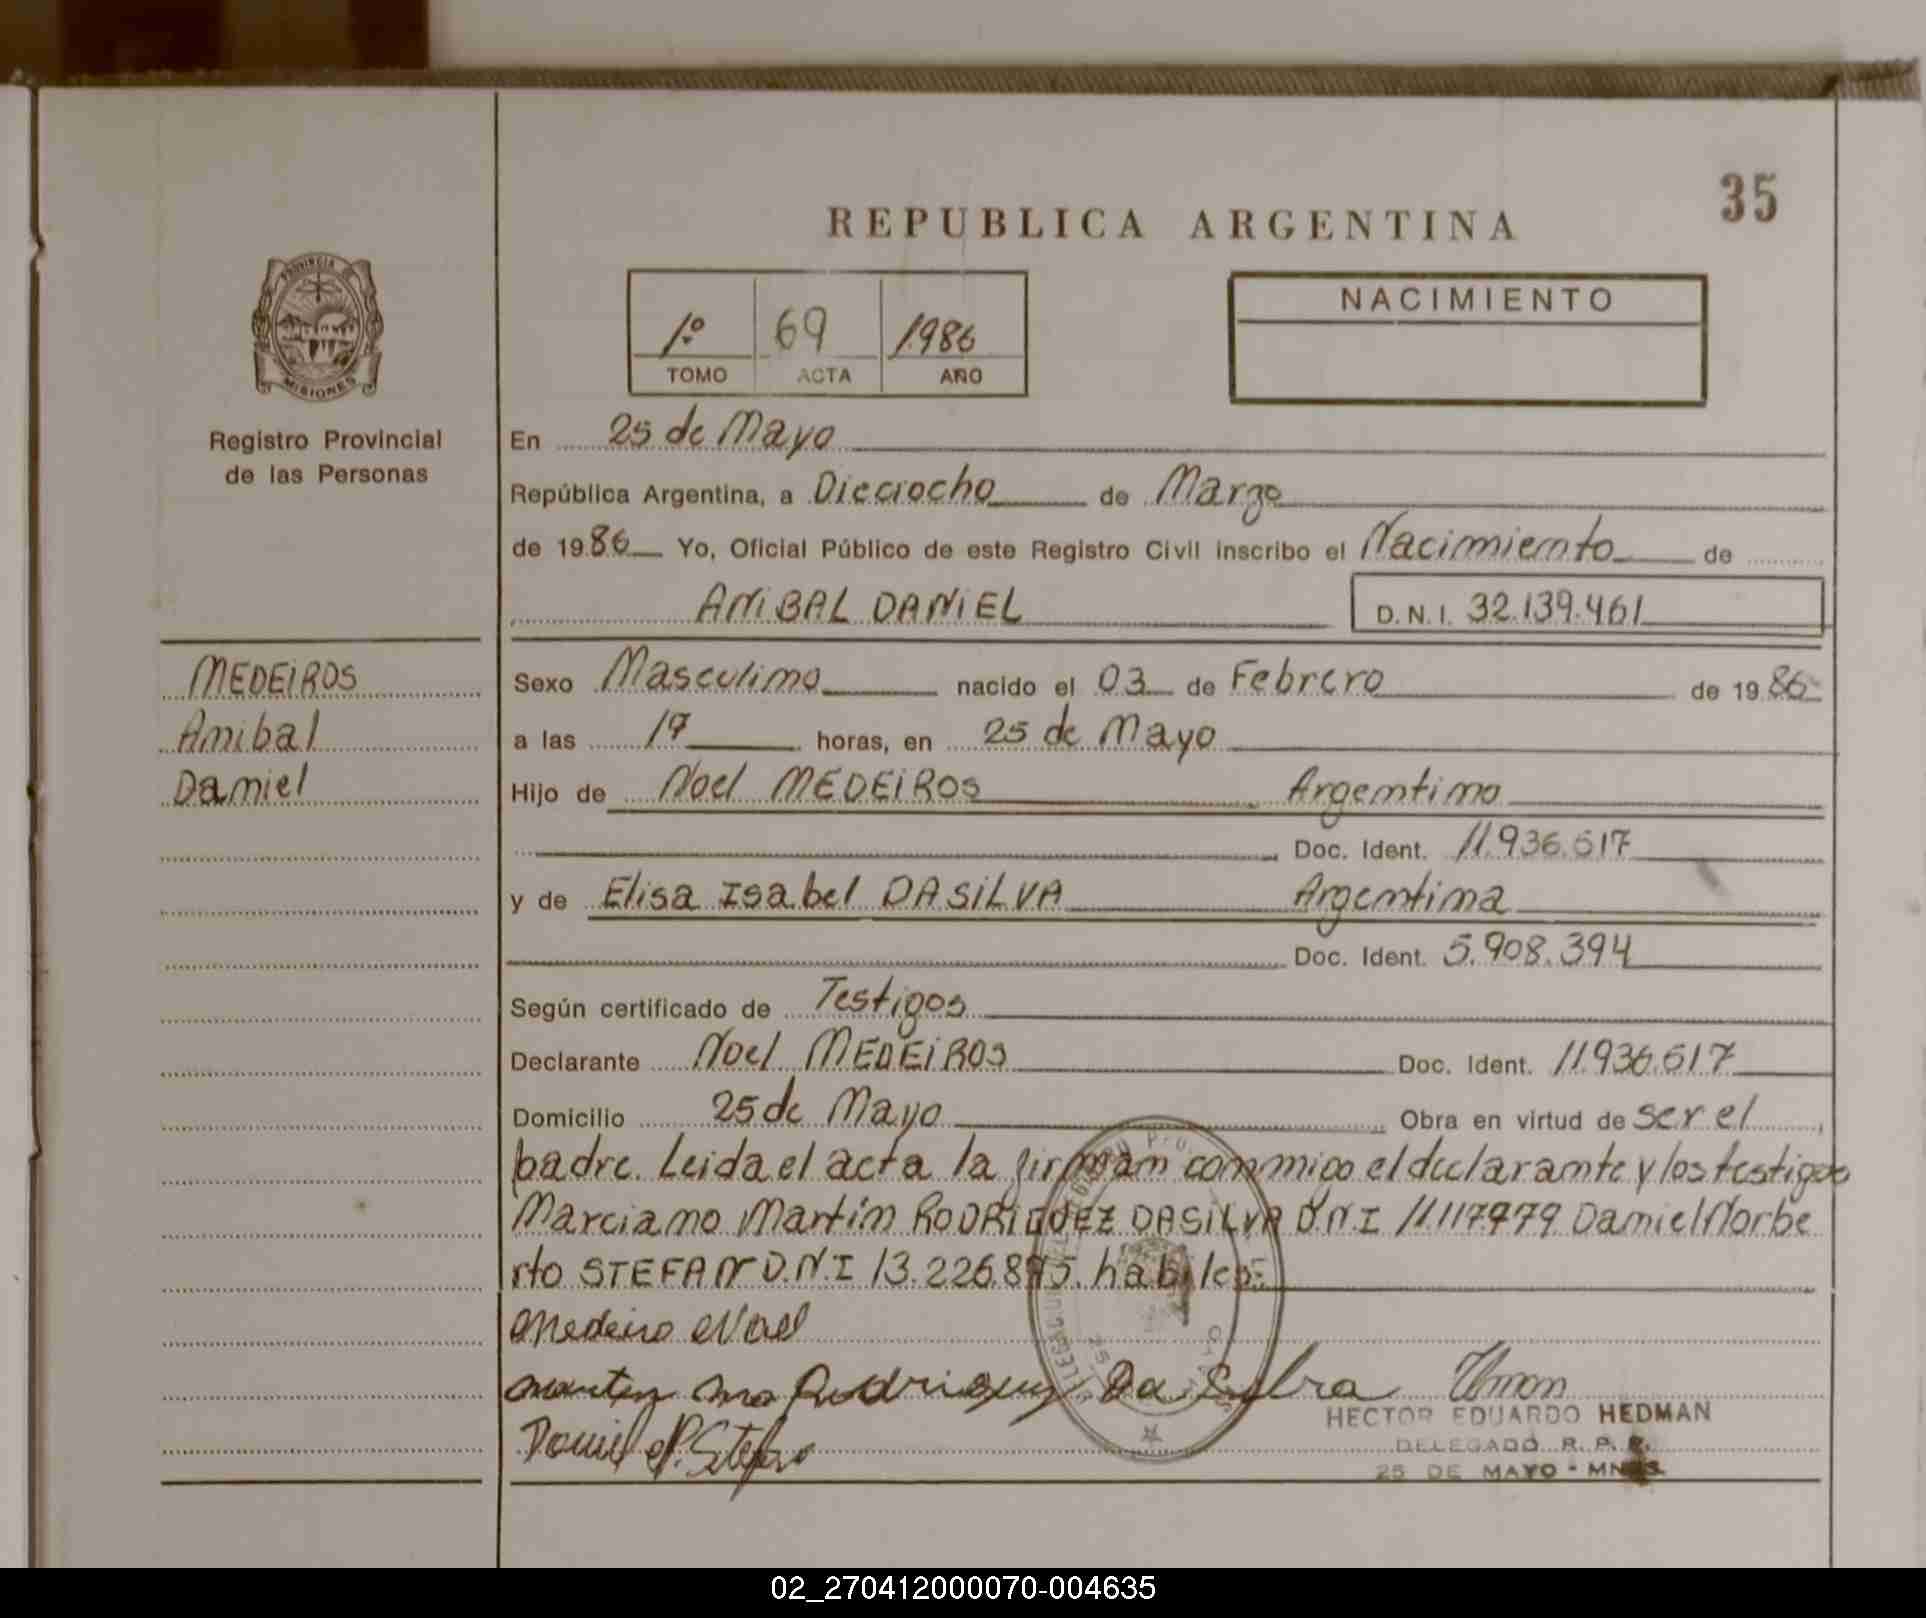 35
REPUBLICA ARGENTINA
PROVINCIA DE
MISIONES
Registro Provincial
de las Personas
1º 69 1986
TOMO ACTA AÑO
NACIMIENTO
En 25 de Mayo
República Argentina, a Dieciocho de Marzo
de 1986 Yo, Oficial Público de este Registro Civil inscribo el Nacimiento de
ANIBAL DANIEL D.N.I. 32.139.461
MEDEIROS
Anibal
Daniel
Sexo Masculino nacido el 03 de Febrero de 1986
a las 17 horas, en 25 de Mayo
Hijo de Noel MEDEIROS Argentino
Doc. Ident. 11.936.617
y de Elisa Isabel DASILVA Argentina
Doc. Ident. 5.908.394
Según certificado de Testigos
Declarante Noel MEDEIROS Doc. Ident. 11.936.617
Domicilio 25 de Mayo Obra en virtud de ser el
padre. Leida el acta la firman conmigo el declarante y los testigos
Marciano Martín RODRIGUEZ DASILVA D.N.I 11.117.979 Daniel Norbe
rto STEFAN D.N.I 13.226.895. habiles.
Medeiro Noel
Rodriguez Da Silva
HECTOR EDUARDO HEDMAN
DELEGADO R. P. P.
25 DE MAYO - MNES.
02_270412000070-004635